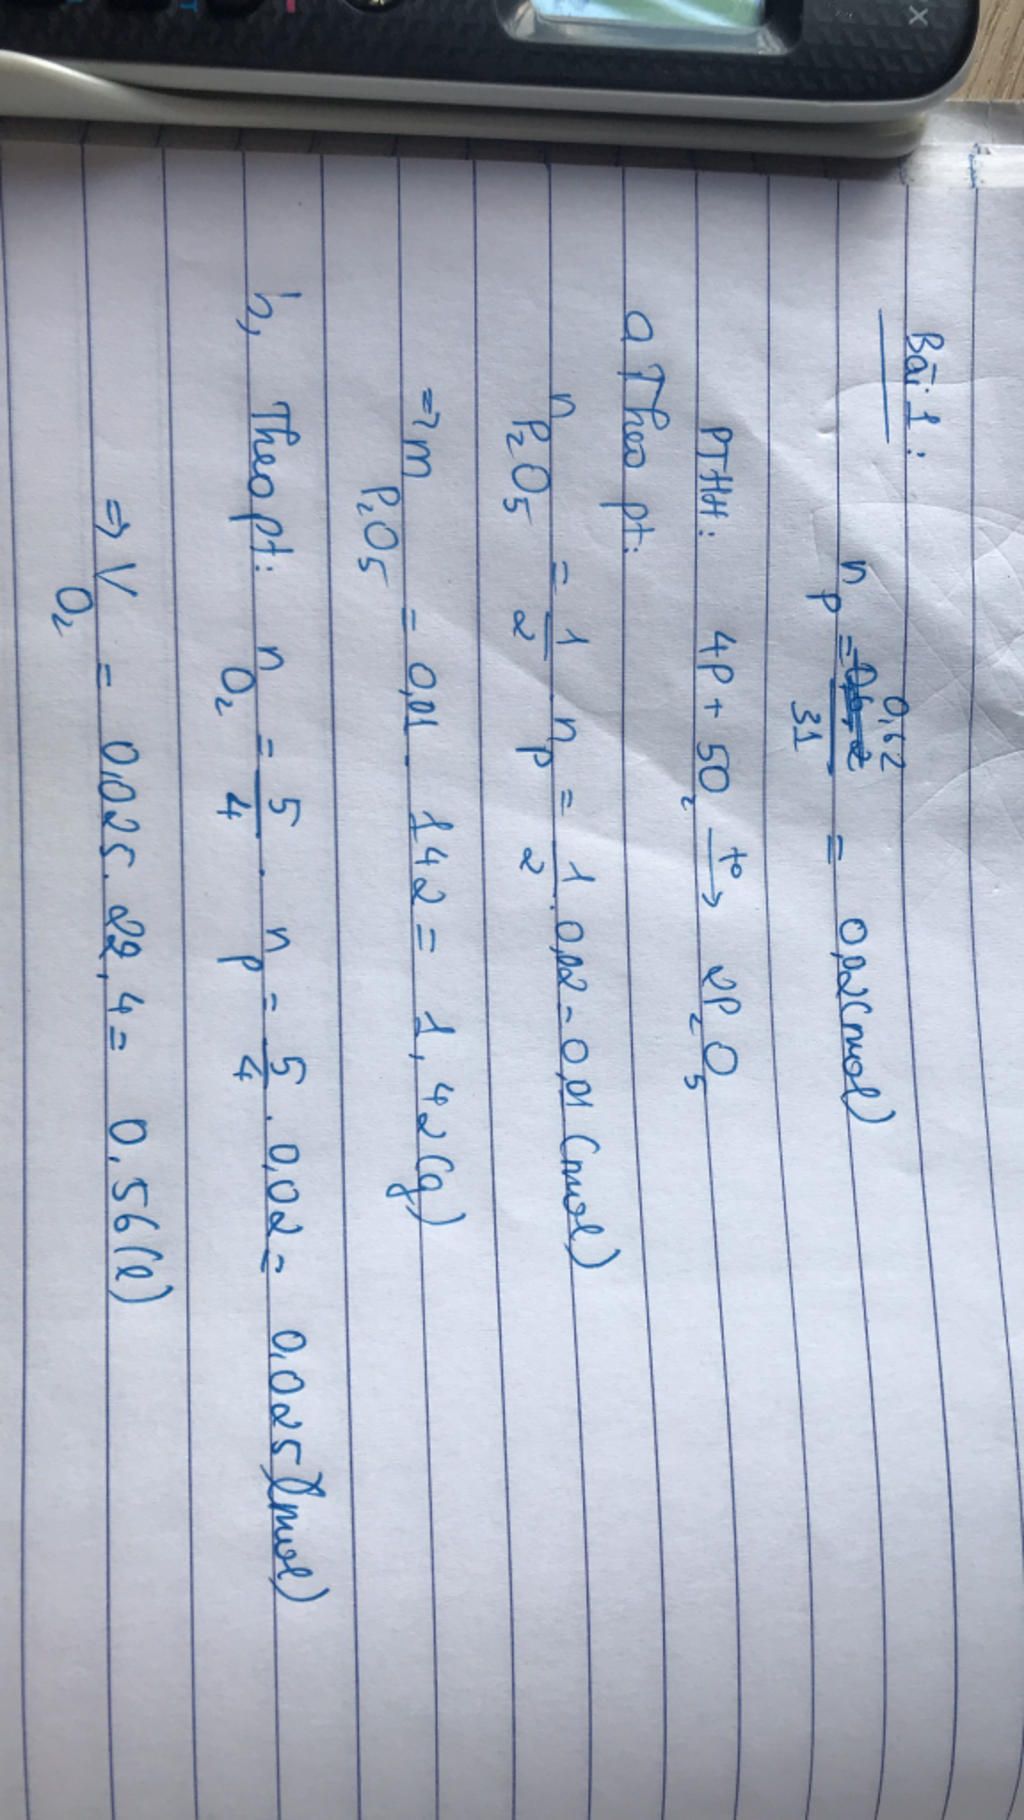 Bài 1:
n P = 0,62 / 31 = 0,02 (mol)
PTHH: 4P + 5O2 -t°-> 2P2O5
a Theo pt:
n P2O5 = 1/2 . n P = 1/2 . 0,02 = 0,01 (mol)
=> m P2O5 = 0,01 . 142 = 1,42 (g)
b, Theo pt: n O2 = 5/4 . n P = 5/4 . 0,02 = 0,025 (mol)
=> V O2 = 0,025 . 22,4 = 0,56 (l)